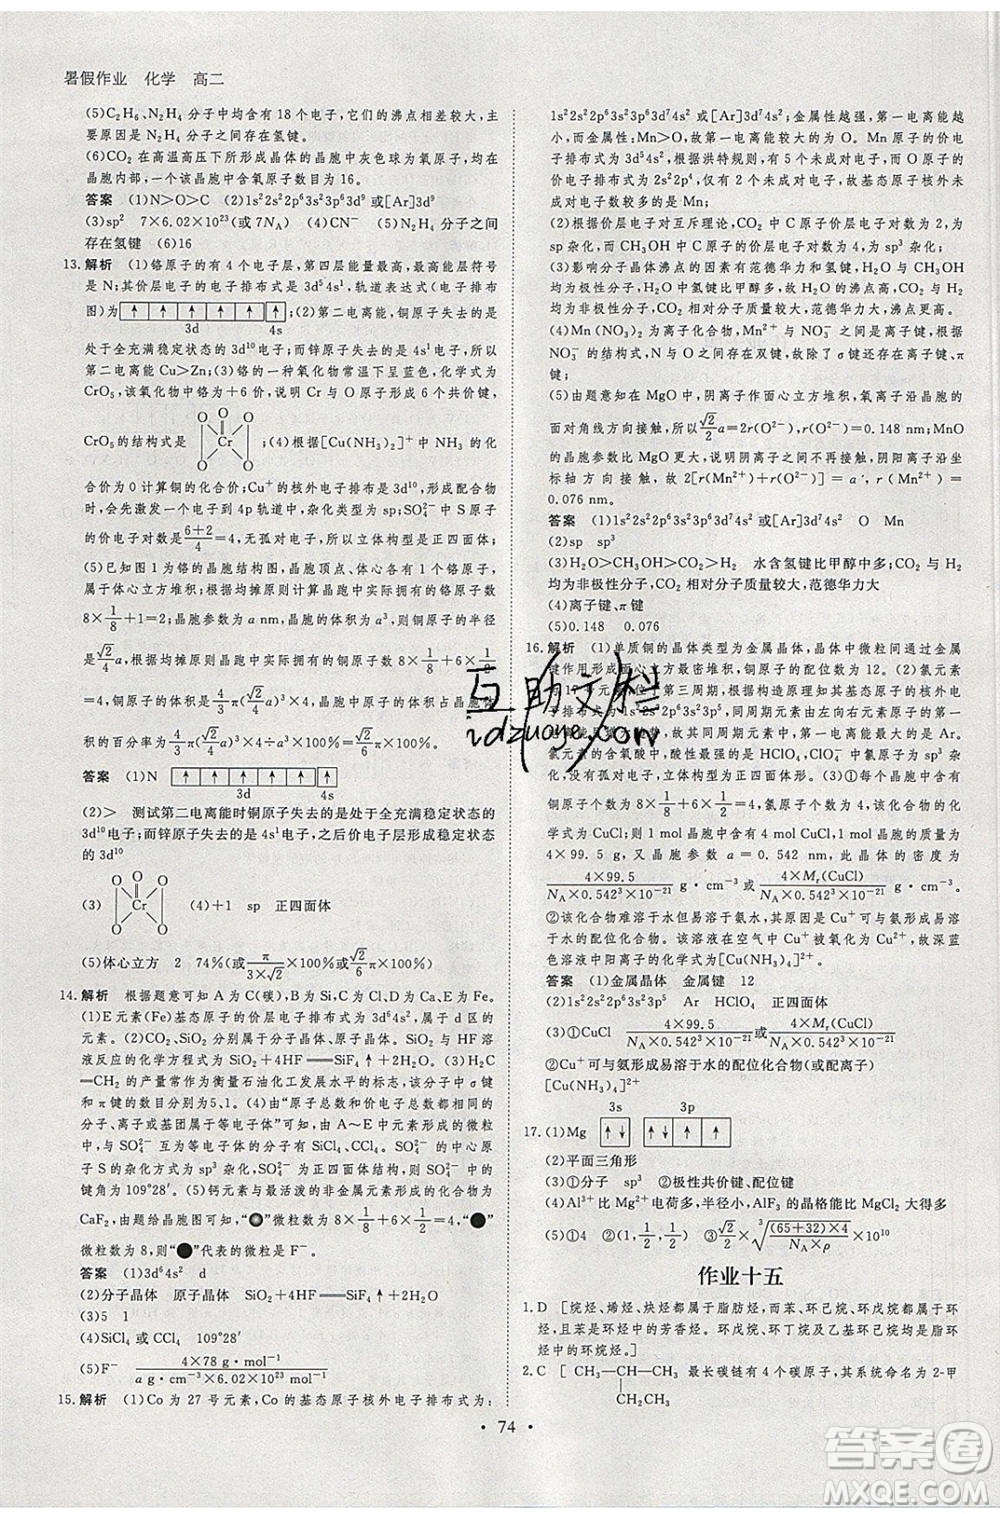 暑假作业　化学　高二
(5)C₂H₆、N₂H₄ 分子中均含有 18 个电子，它们的沸点相差较大，主
要原因是 N₂H₄ 分子之间存在氢键。
(6)CO₂ 在高温高压下所形成晶体的晶胞中灰色球为氧原子，在
晶胞内部，一个该晶胞中含氧原子数目为 16。
答案　(1)N＞O＞C　(2)1s²2s²2p⁶3s²3p⁶3d⁹或[Ar]3d⁹
(3)sp²　7×6.02×10²³(或 7N_A)　(4)CN⁻　(5)N₂H₄ 分子之间
存在氢键　(6)16
13. 解析　(1)铬原子的有 4 个电子层，第四层能量最高，能层符号
是 N；其价层电子的排布式是 3d⁵4s¹，轨道表达式(电子排布
图)为 ↑ ↑ ↑ ↑ ↑ ↑
3d　4s
；(2)第二电离能，铜原子失去的是
处于全充满稳定状态的 3d¹⁰电子；而锌原子失去的是 4s¹电子，故
第二电离能 Cu＞Zn；(3)铬的一种氧化物常温下呈蓝色，化学式为
CrO₅，该氧化物中铬为＋6 价，说明 Cr 与 O 形成 6 个共价键，则
CrO₅的结构式是
O O O Cr O O
；(4)根据[Cu(NH₃)₂]⁺中 NH₃ 的化
合价为 0 计算铜的化合价；Cu⁺的核外电子排布是 3d¹⁰，形成配合物
时，会先激发一个电子到 4p 轨道中，杂化类型为 sp；SO₄²⁻中 S 原子
的价电子对数为 (6+2)/4 ＝4，无孤对电子，立体构型为正四面体；
(5)根据图 1 铬的晶胞结构图，晶胞顶点、体心为铬原子，所以堆积
方式是体心立方堆积；根据均摊原则，每个晶胞实际占有铬原子数
8×1/8＋1＝2；设晶胞参数为 a nm，晶胞的体积为 a³，则铜原子的半
径是 √2/4 a，根据均摊原则每个晶胞占用铜原子数 8×1/8＋6×1/2
＝4，铜原子的体积是 4/3π(√2/4 a)³×4，铜晶胞中原子的体积占晶胞体
积的百分率为 4/3π(√2/4 a)³×4÷a³×100%＝74%。
答案　(1)N　↑ ↑ ↑ ↑ ↑ ↑
3d　4s
(2)＞　测试第二电离能时铜原子失去的是处于全充满稳定状态的
3d¹⁰电子；而锌原子失去的是 4s¹电子，之后价电子层形成稳定状态
的 3d¹⁰
(3)
O O O Cr O O
(4)＋1　sp　正四面体
(5)体心立方　2　74%(或 π/(3×√2) ×100% 或 √2/6 π×100%)
14. 解析　根据题意可知 A 为 C(碳)，B 为 Si，C 为 S，D 为 Ca，E 为 Fe。
(1)E 元素(Fe)基态原子的价层电子排布式为 3d⁶4s²，属于 d 区的
元素。(2)CO₂、SiO₂ 分别属于分子晶体和原子晶体，SiO₂ 与 HF
溶液反应的化学方程式为 SiO₂＋4HF══SiF₄↑＋2H₂O；(3)H₂C
═CH₂ 的产量常作为衡量石油化工发展水平的标志，该分子中 σ 键
与 π 键的数目分别为5、1。(4)由“原子总数和价电子总数都相同的
分子、离子或基团属于等电子体”可以推知，由 A～E 中元素形成的微粒
中，与 SO₄²⁻ 互为等电子体的分子为 SiCl₄、CCl₄，SO₄²⁻ 的中心原
子 S 的杂化方式为 sp³ 杂化，SO₄²⁻ 的立体构型为正四面体形，故键
角为 109°28′。(5)钙元素与最活泼的非金属元素形成的化合物为
CaF₂，由晶胞图可计算，“●”微粒数为 8×1/8＋6×1/2＝4，“●”
微粒数为 8，故“●”代表的微粒是 F⁻。
答案　(1)3d⁶4s²　d
(2)分子晶体　原子晶体　SiO₂＋4HF══SiF₄↑＋2H₂O
(3)5　1
(4)SiCl₄ 或 CCl₄　109°28′
(5)F⁻　(4×78 g·mol⁻¹)/(a g·cm⁻³×6.02×10²³ mol⁻¹)
15. 解析　(1)Co 为 27 号元素，Co 的基态原子核外电子排布式为：
1s²2s²2p⁶3s²3p⁶3d⁷4s² 或[Ar]3d⁷4s²；金属性越强，第一电离能越
小，而金属性：Mn＞O，故第一电离能较大的为 O。Mn 原子的价电
子排布式为 3d⁵4s²，根据洪特规则，有 5 个未成对电子，而 O 原子的
价电子排布式为 2s²2p⁴，仅有 2 个未成对电子，故基态原子核外未
成对电子数较多的为 Mn；
(2)根据价层电子对互斥理论，CO₂ 中 C 原子价层电子对数为 2，为
sp 杂化，而 CH₃OH 中 C 原子的价层电子对数为 4，为 sp³ 杂化；
(3)影响分子晶体沸点的因素有范德华力和氢键，水和甲醇均为极
性分子，常温常压下两种物质呈液态；水中氢键比甲醇多，故水的沸
点高于甲醇，而 CO₂ 和 H₂ 均为非极性分子，CO₂ 的相对分子质量
大于 H₂，CO₂ 中范德华力大，所以沸点更高。
(4)Mn(NO₃)₂ 为离子化合物，Mn²⁺与 NO₃⁻ 之间的化学键为离子键；
NO₃⁻ 的结构式中 N、O 之间存在双键，故除了 σ 键还存在离子键、
π 键。
(5)由题意知在 MgO 中，阴离子作面心立方堆积，氧离子沿晶胞的
面对角线方向接触，所以 √2/2 a＝2r(O²⁻)，r(O²⁻)＝0.148 nm；MnO
的晶胞参数比 MgO 更大，说明阴离子之间不再接触，阴阳离子沿
坐标轴方向接触，故 2[r(Mn²⁺)＋r(O²⁻)]＝a′，r(Mn²⁺)＝
0.076 nm。
答案　(1)1s²2s²2p⁶3s²3p⁶3d⁷4s² 或[Ar]3d⁷4s²　O　Mn
(2)sp　sp³
(3)H₂O＞CH₃OH＞CO₂＞H₂　水含氢键比甲醇中多，CO₂ 与 H₂
均为非极性分子，CO₂ 相对分子质量较大，范德华力大
(4)离子键、π 键
(5)0.148　0.076
16. 解析　(1)单质铜的晶体类型为金属晶体，晶体中微粒间通过金属
键作用形成面心立方最密堆积，铜原子的配位数为 12。(2)氯元素
位于 17 族第三周期，根据构造原理知其基态原子的核外电
子排布式为 1s²2s²2p⁶3s²3p⁵，同周期元素由左向右元素原子的第
一电离能逐渐增大，故其同周期元素中，第一电离能最大的是 Ar。
氯元素的含氧酸中，酸性最强的是 HClO₄，立体构型为正四面体形。(3)①晶胞中含
铜原子个数为 8×1/8＋6×1/2＝4，氯原子个数为 4，则化
学式为 CuCl；则 1 mol 晶胞中含有 4 mol CuCl，1 mol 晶胞的质量为
4×99.5 g，又晶胞参数 a＝0.542 nm，此晶体的密度为
(4×99.5)/(N_A×0.542³×10⁻²¹) g·cm⁻³ 或 (4×M_r(CuCl))/(N_A×0.542³×10⁻²¹) g·cm⁻³。
②该化合物难溶于水但易溶于氨水，其原因是 Cu⁺可与氨形成易溶
于水的配位化合物；该溶液在空气中 Cu⁺被氧化为 Cu²⁺，故深蓝
色溶液中阳离子为[Cu(NH₃)₄]²⁺。
答案　(1)金属晶体　金属键　12
(2)1s²2s²2p⁶3s²3p⁵　Ar　HClO₄　正四面体
(3)①CuCl　(4×99.5)/(N_A×0.542³×10⁻²¹) 或 (4×M_r(CuCl))/(N_A×0.542³×10⁻²¹)
②Cu⁺可与氨形成易溶于水的配位化合物(或配离子)
[Cu(NH₃)₄]²⁺
3s　3p
17. (1)Mg　↑↓　↑↓ ↑ ↑
(2)平面三角形
(3)分子　sp³　极性共价键、配位键
(4)Al³⁺比 Mg²⁺电荷多，半径小，AlF₃ 的晶格能比 MgCl₂ 大得多
(5)①4　②正四面体　③√2/2×³√((65+32)×4/(N_A×ρ))×10¹⁰
作业十五
1. D　[烷烃、烯烃、炔烃都属于脂肪烃，而苯、环己烷、环戊烷都属于环
烃，且苯是环烃中的芳香烃。环戊烷、环丁烷及乙基环己烷是脂环
烃中的环烷烃。]
2. C　[ CH₃—CH—CH₃　最长碳链有 4 个碳原子，系统命名法为 2-甲
CH₂CH₃
• 74 •
互助文档
idzuoye.com
答案圈
MXQE.COM